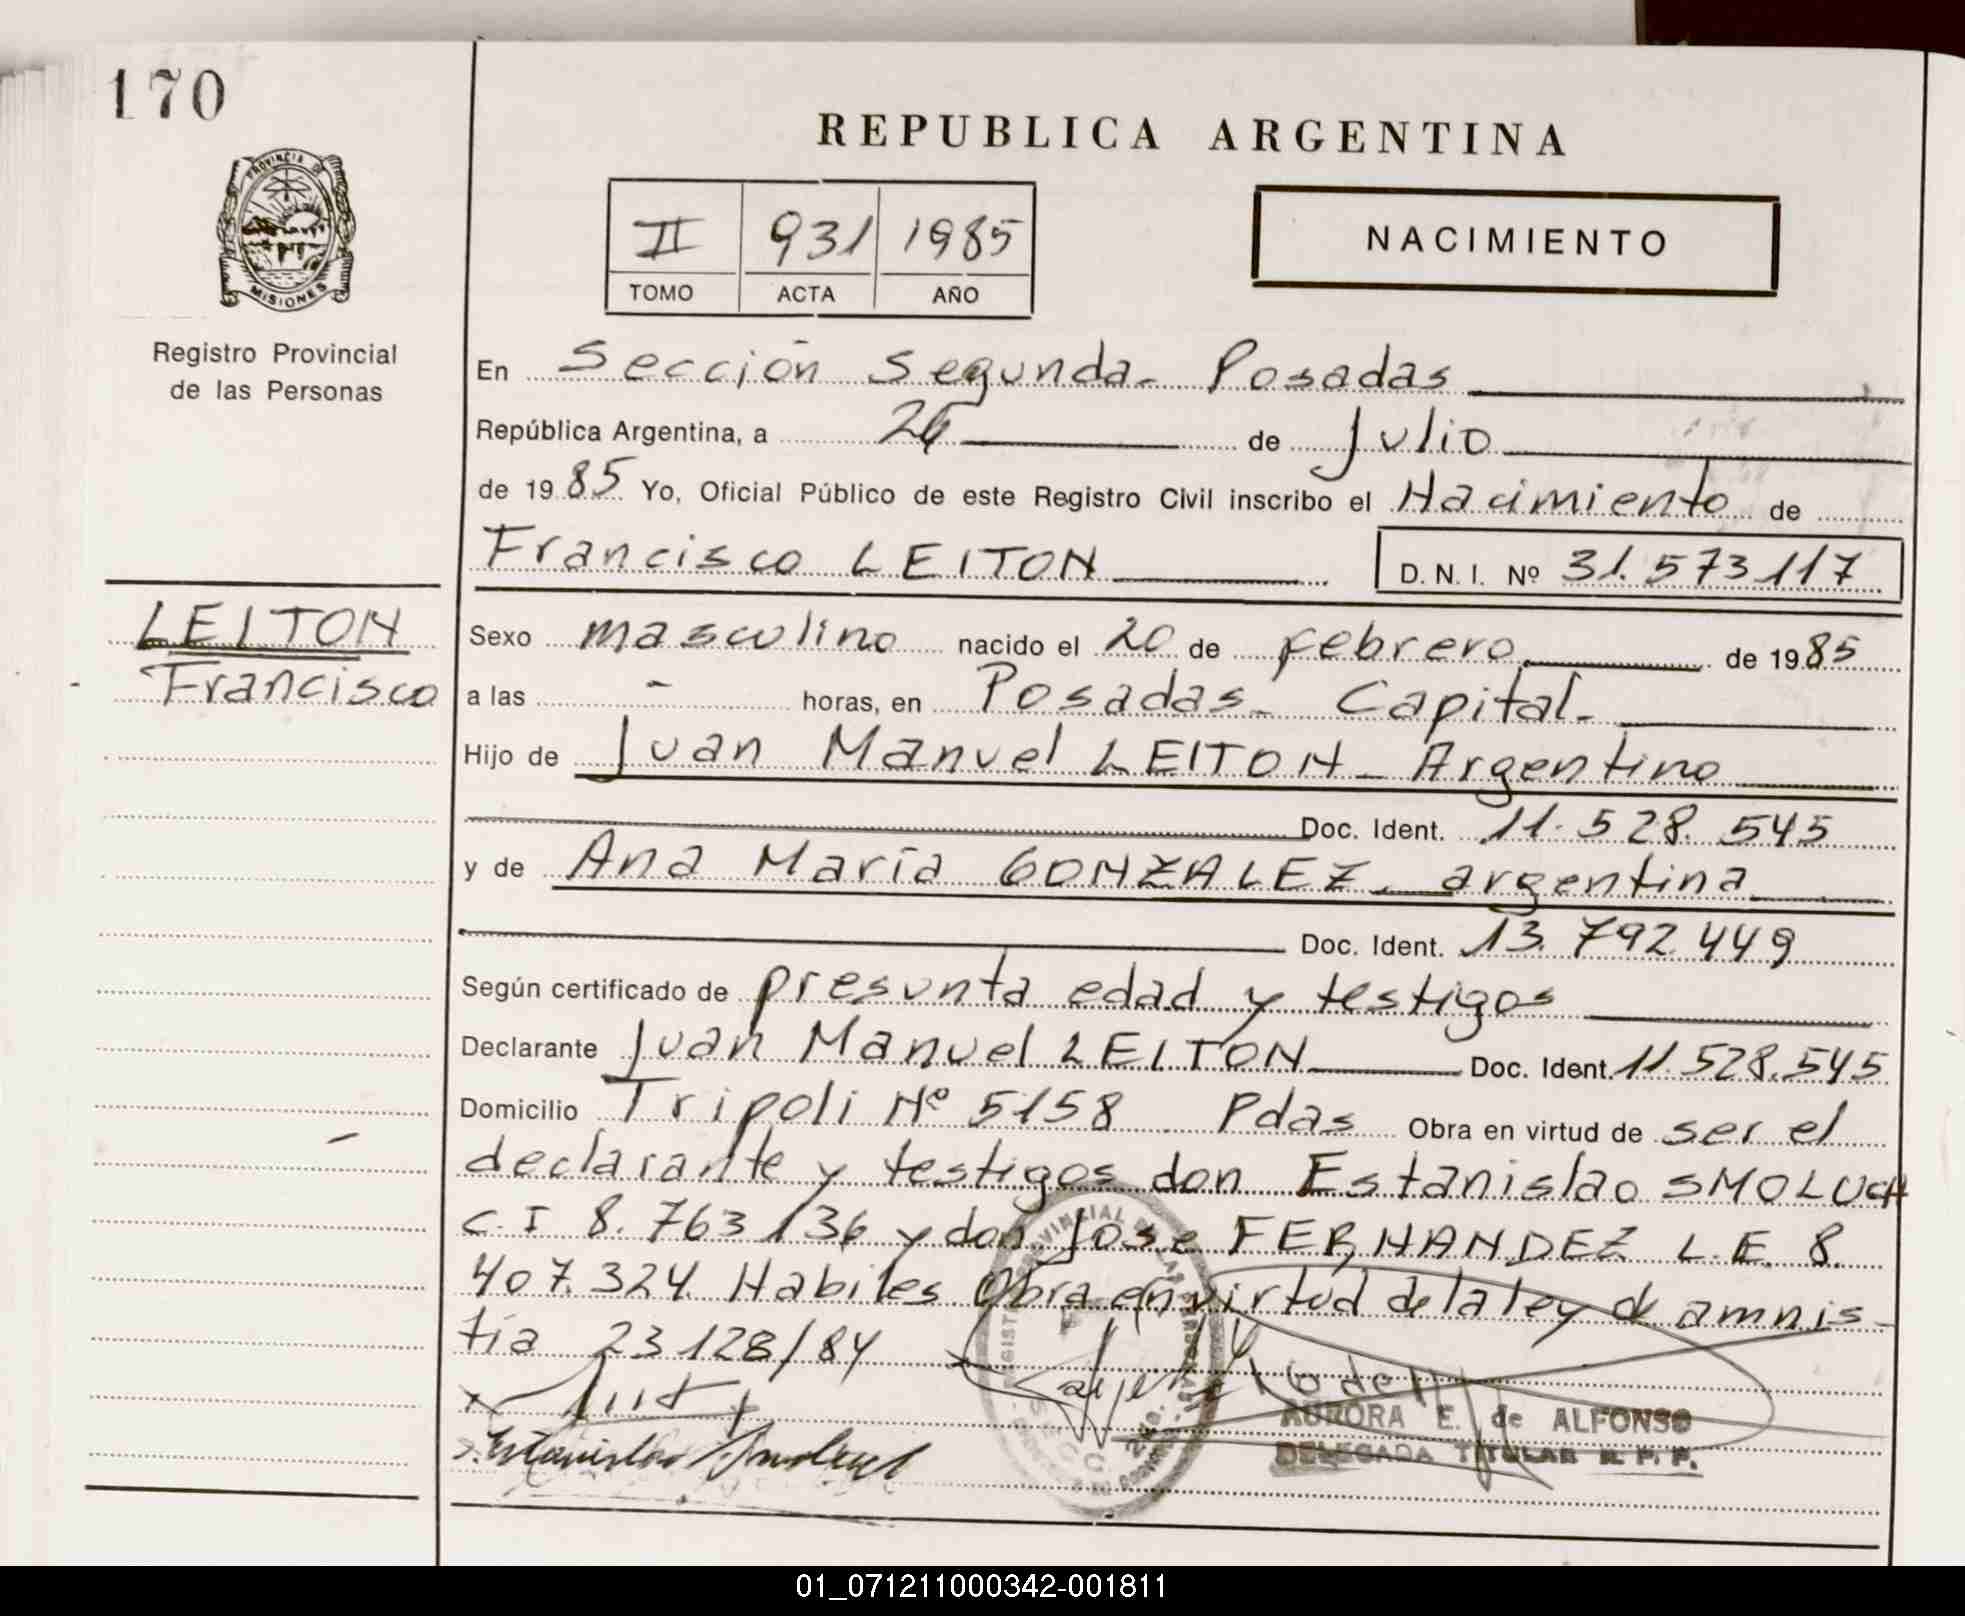 170
REPUBLICA ARGENTINA
PROVINCIA DE
MISIONES
Registro Provincial
de las Personas
II 931 1985
TOMO ACTA AÑO
NACIMIENTO
En Sección Segunda - Posadas
República Argentina, a 26 de Julio
de 1985 Yo, Oficial Público de este Registro Civil inscribo el Nacimiento de
Francisco LEITON D. N. I. Nº 31.573.117
LEITON
Francisco
Sexo masculino nacido el 20 de febrero de 1985
a las - horas, en Posadas - Capital -
Hijo de Juan Manuel LEITON - Argentino
Doc. Ident. 11.528.545
y de Ana María GONZALEZ - argentina
Doc. Ident. 13.792.449
Según certificado de presunta edad y testigos
Declarante Juan Manuel LEITON Doc. Ident. 11.528.545
Domicilio Tripoli Nº 5158 Pdas Obra en virtud de ser el
declarante y testigos don Estanislao SMOLUCH
C.I 8.763136 y don Jose FERNANDEZ L.E. 8.
407.324. Habiles Obra en virtud de la ley de amnis-
tia 23128/84
AURORA E. de ALFONSO
DELEGADA TITULAR R. P. P.
01_071211000342-001811